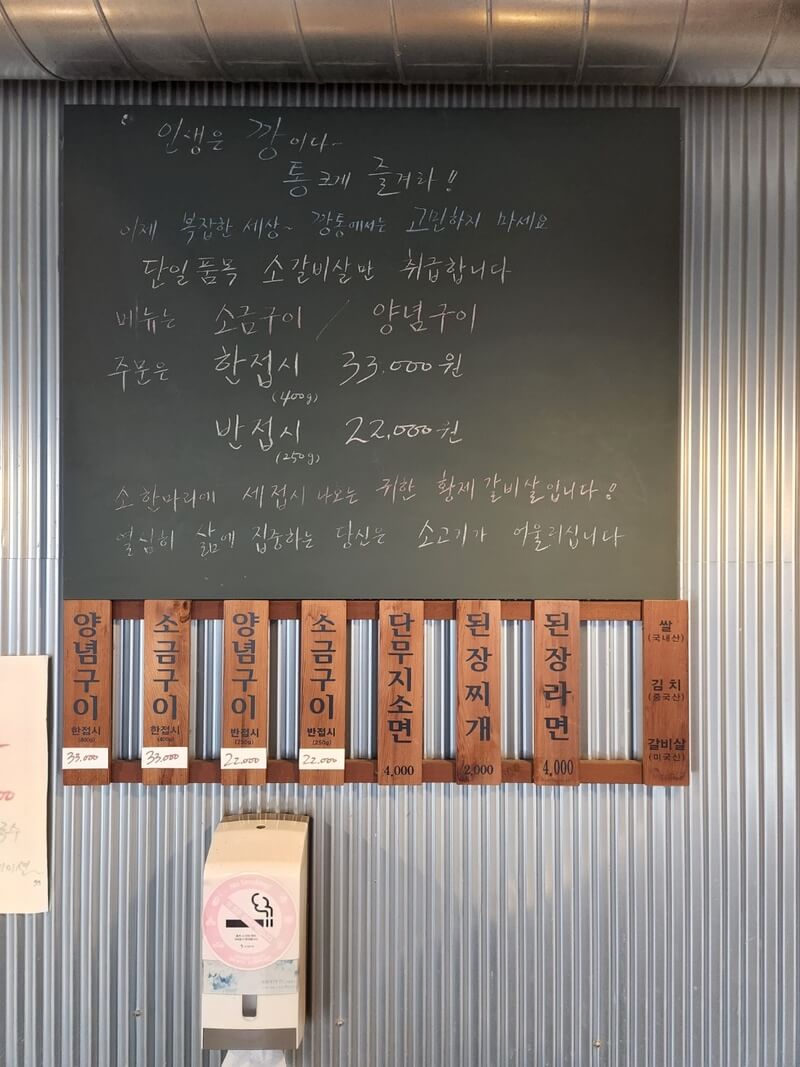 인생은 깡이다~
통크게 즐겨라!!
이제 복잡한 세상~ 깡통에서는 고민하지 마세요
단일품목 소갈비살만 취급합니다
메뉴는 소금구이 / 양념구이
주문은 한접시 33.000원
(400g)
반접시 22,000원
(250g)
소한마리에 세접시 나오는 귀한 황제갈비살입니다!
열심히 삶에 집중하는 당신은 소고기가 어울리십니다
양념구이
한접시
(400g)
33.000
소금구이
한접시
(400g)
33.000
양념구이
반접시
(250g)
22.000
소금구이
반접시
(250g)
22.000
단무지소면
4,000
된장찌개
2,000
된장라면
4,000
쌀
(국내산)
김치
(중국산)
갈비살
(미국산)
No Smoking